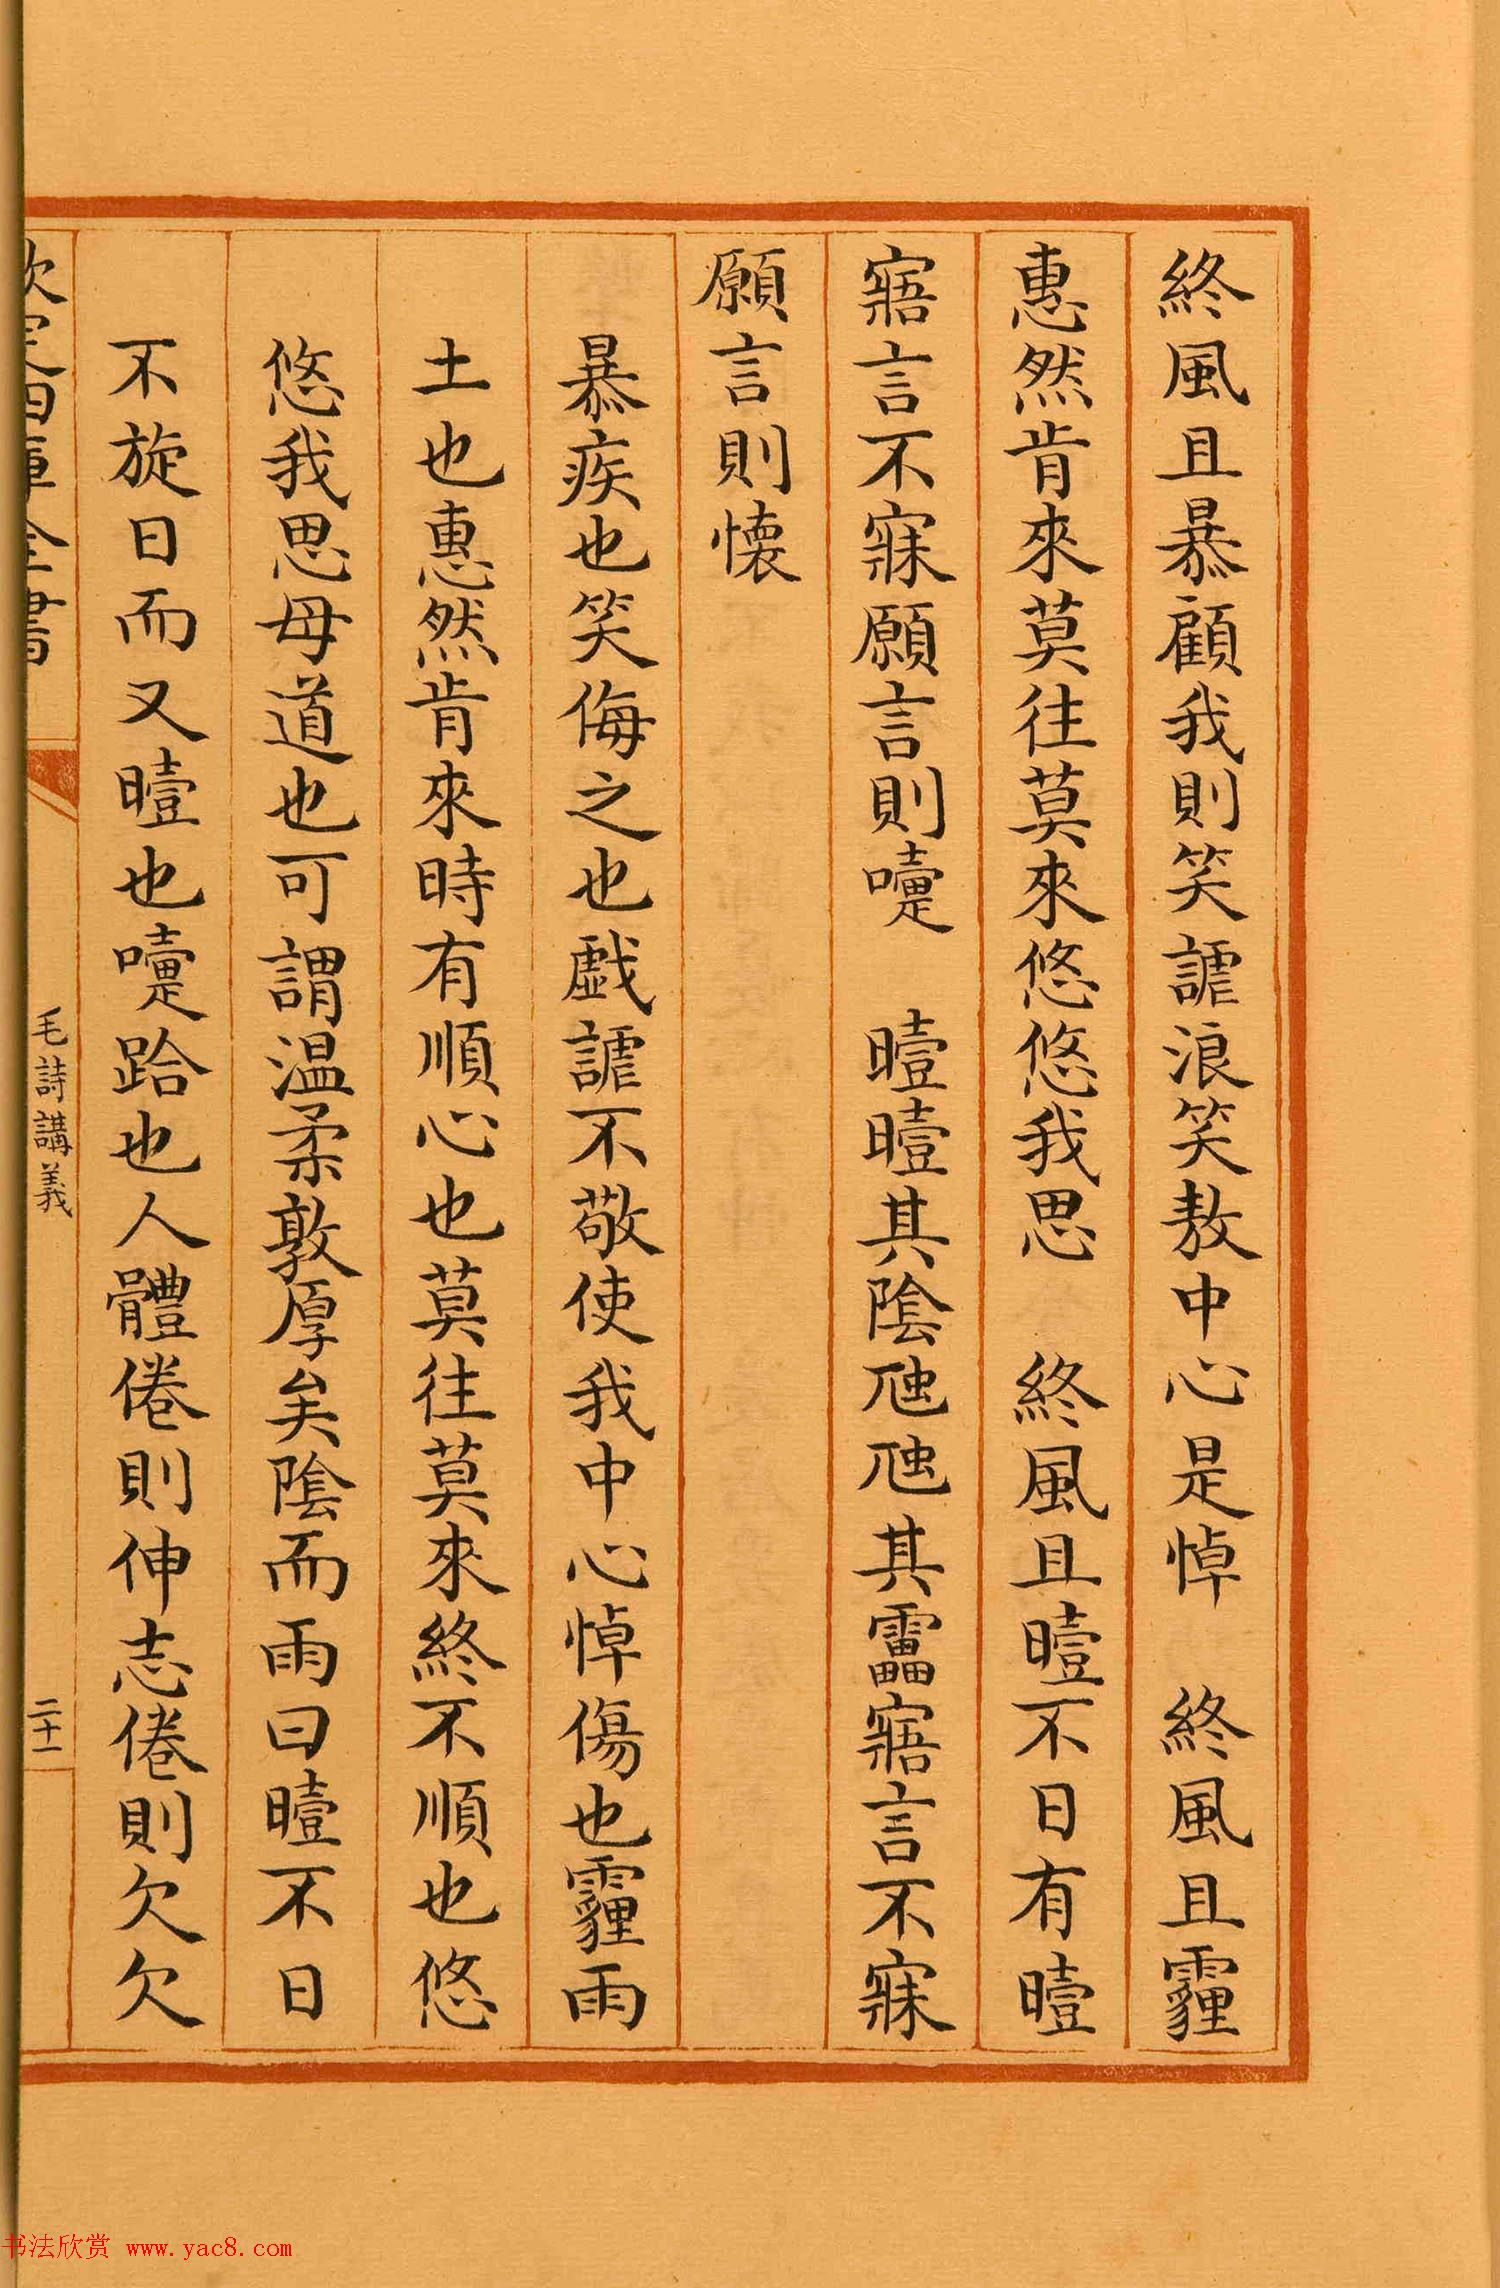 終風且暴顧我則笑謔浪笑敖中心是悼　終風且霾
惠然肯來莫往莫來悠悠我思　終風且曀不日有曀
寤言不寐願言則嚏　曀曀其陰虺虺其靁寤言不寐
願言則懷
暴疾也笑侮之也戲謔不敬使我中心悼傷也霾雨
土也惠然肯來時有順心也莫往莫來終不順也悠
悠我思母道也可謂温柔敦厚矣陰而雨曰曀不日
不旋日而又曀也嚏跲也人體倦則伸志倦則欠欠
欽定四庫全書
毛詩講義
二十一
书法欣赏 www.yac8.com